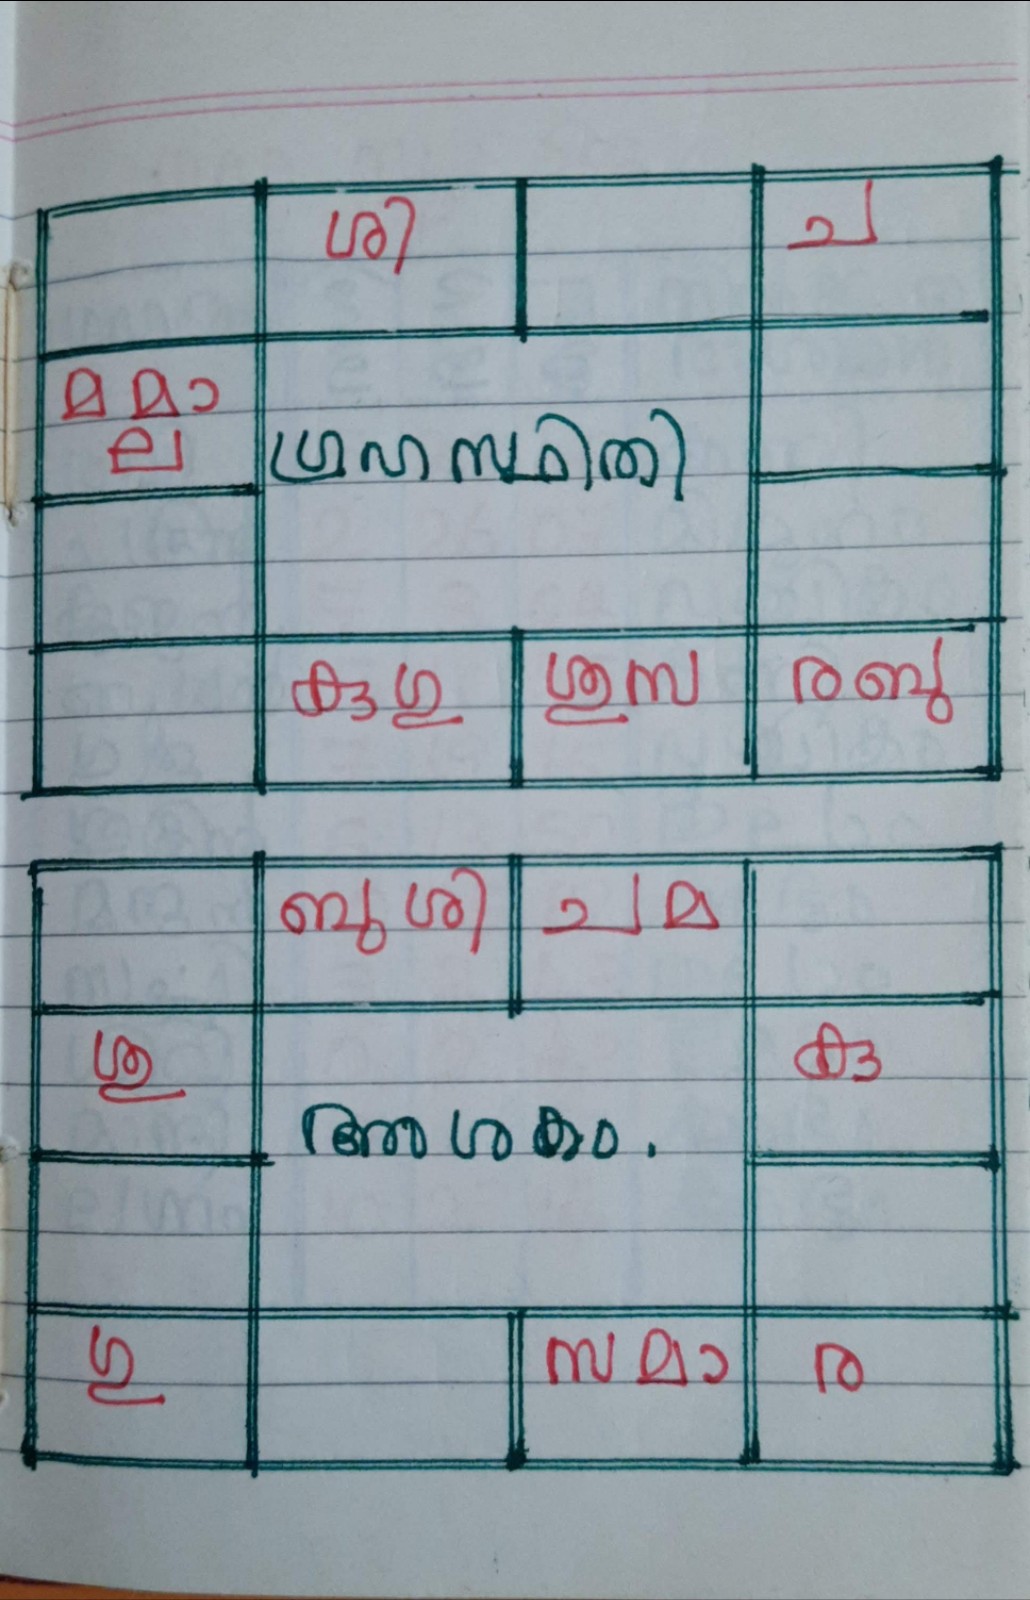 ശി ച
മ മാ
ല
ഗ്രഹസ്ഥിതി
കു ഗു ശു സ ര ബു
ബു ശി ച മ
ശു കു
അംശകം.
ഗു സ മാ ര